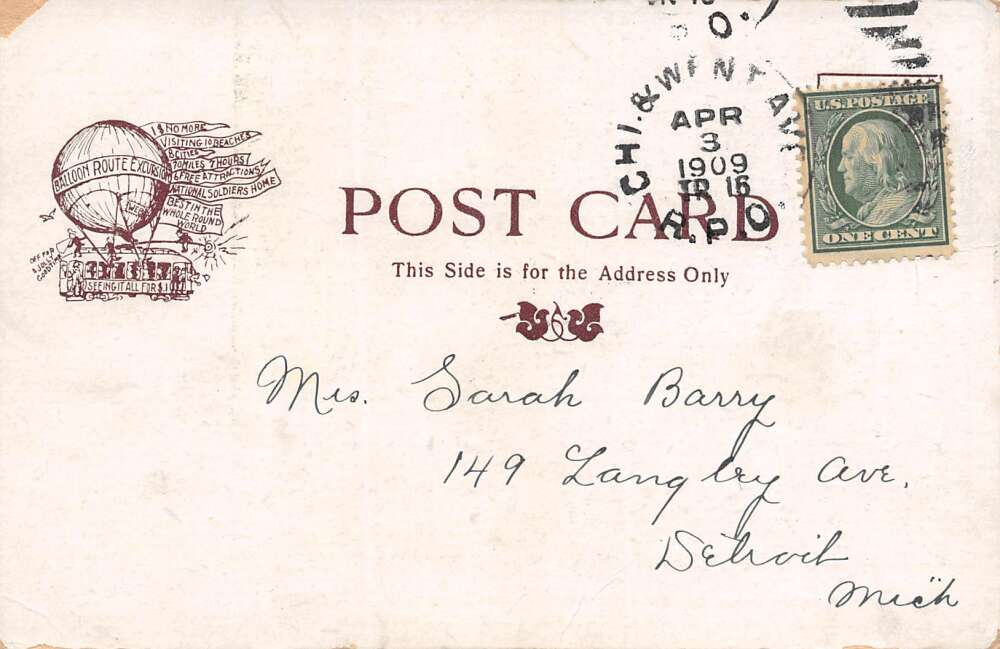 1$ NO MORE
VISITING 10 BEACHES
8 CITIES
70 MILES 7 HOURS
6 FREE ATTRACTIONS
NATIONAL SOLDIERS HOME
BEST IN THE
WHOLE ROUND
WORLD
BALLOON ROUTE EXCURSION
OFF FOR
A JOLLY
GOOD TIME
SEEING IT ALL FOR $1
CHI. & WENT AV
APR
3
1909
TR 16
R.P.O.
U.S. POSTAGE
ONE CENT
POST CARD
This Side is for the Address Only
Mrs. Sarah Barry
149 Langley Ave.
Detroit
Mich